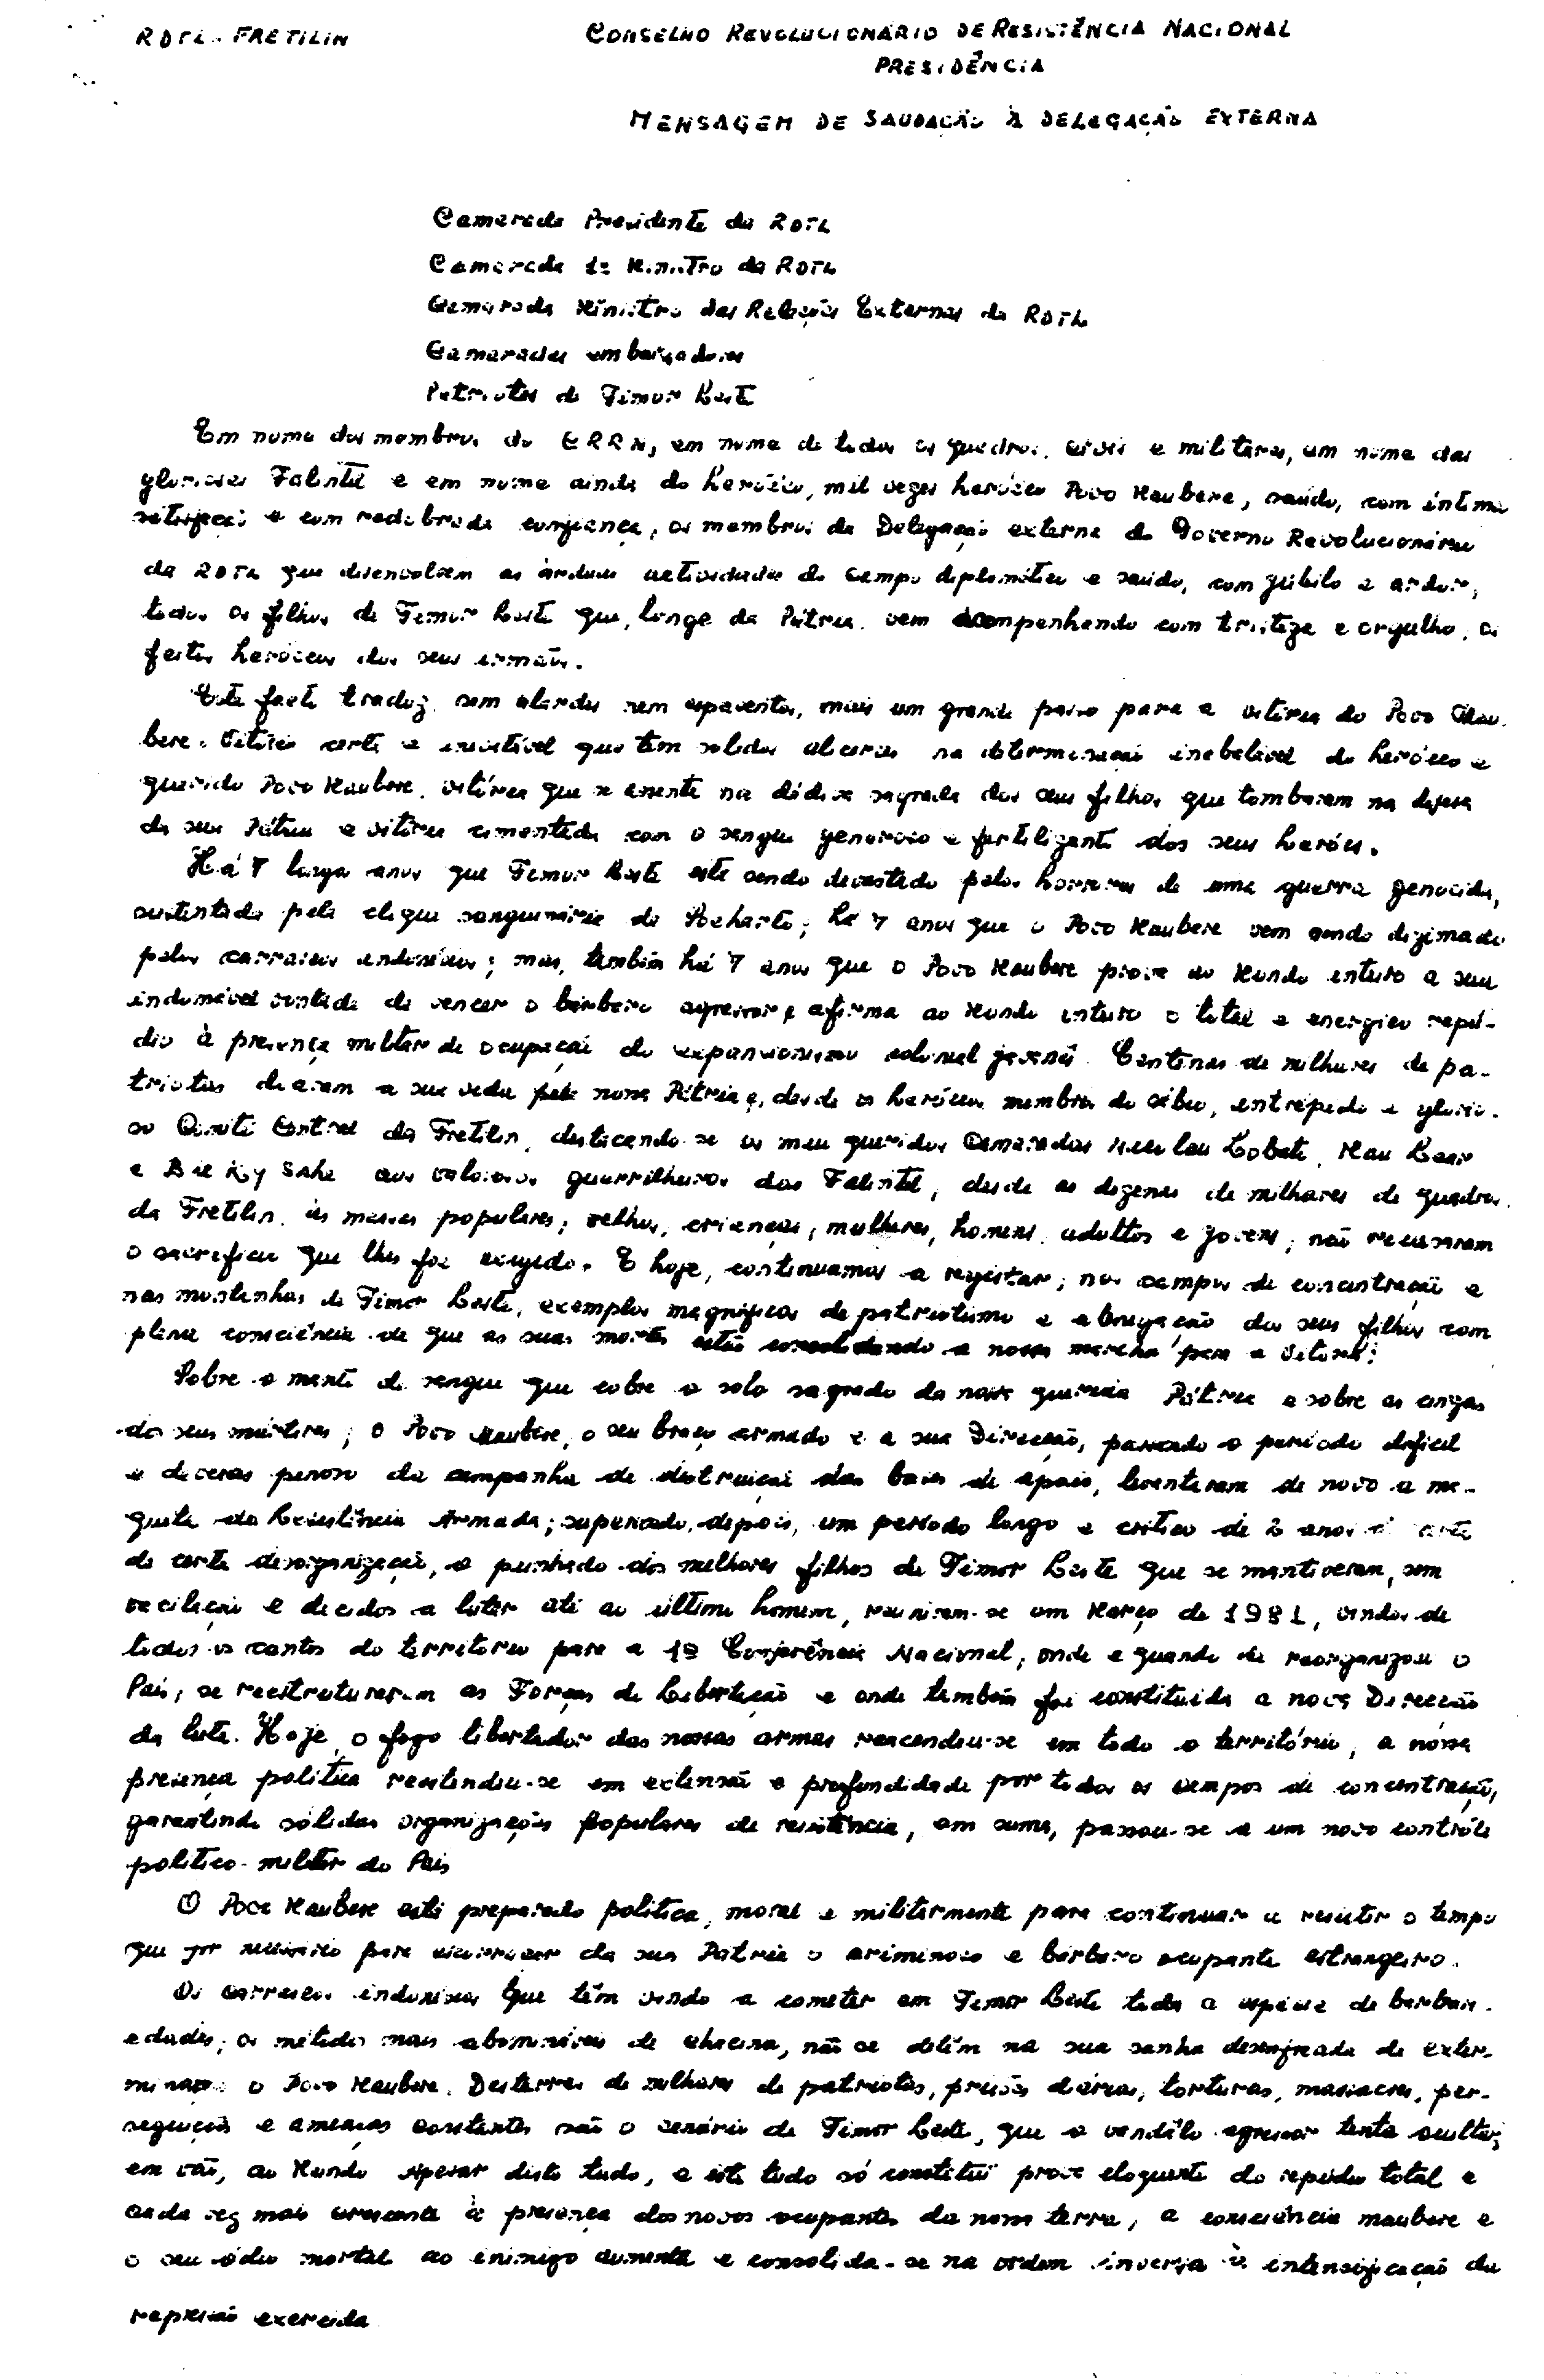 RDTL - FRETILIN
CONSELHO REVOLUCIONÁRIO DE RESISTÊNCIA NACIONAL
PRESIDÊNCIA
MENSAGEM DE SAUDAÇÃO À DELEGAÇÃO EXTERNA
Camarada Presidente da RDTL
Camarada 1º Ministro da RDTL
Camarada Ministro das Relações Externas da RDTL
Camaradas embaixadores
Patriotas de Timor Leste
Em nome dos membros do CRRN, em nome de todos os quadros, civis e militares, em nome das
gloriosas Falintil e em nome ainda do heróico, mil vezes heróico Povo Maubere, saúdo, com íntima
satisfação e com redobrada confiança, os membros da Delegação externa do Governo Revolucionário
da RDTL que desenvolvem as árduas actividades do campo diplomático e saúdo, com júbilo e ardor,
todos os filhos de Timor Leste que, longe da Pátria, vem acompanhando com tristeza e orgulho, os
feitos heróicos dos seus irmãos.
Este facto traduz, sem alardes nem espaventos, mais um grande passo para a vitória do Povo Mau-
bere. Vitória certa e inevitável que tem sólidos alicerces na determinação inabalável do heróico e
querido Povo Maubere, vitória que se assenta na dádiva sagrada dos seus filhos que tombaram na defesa
da sua Pátria e vitória cimentada com o sangue generoso e fertilizante dos seus heróis.
Há 7 longos anos que Timor Leste está sendo devastado pelos horrores de uma guerra genocida,
sustentada pela clique sanguinária de Soeharto; há 7 anos que o Povo Maubere vem sendo dizimado
pelos carrascos indonésios; mas, também há 7 anos que o Povo Maubere prova ao Mundo inteiro a sua
indomável vontade de vencer o bárbaro agressor e afirma ao Mundo inteiro o total e enérgico repú-
dio à presença militar de ocupação do expansionismo colonial javanês. Centenas de milhares de pa-
triotas deram a sua vida pela nossa Pátria e, desde os heróicos membros do sábio, intrépido e glorio-
so Comité Central da Fretilin, destacando-se os meus queridos Camaradas Nicolau Lobato, Mau Lear
e Bie Ky Sahe aos valorosos guerrilheiros das Falintil, desde as dezenas de milhares de quadros
da Fretilin, às massas populares; velhos, crianças, mulheres, homens, adultos e jovens, não recusaram
o sacrifício que lhes foi exigido. E hoje, continuamos a registar, nos campos de concentração e
nas montanhas de Timor Leste, exemplos magníficos de patriotismo e abnegação dos seus filhos com
plena consciência de que as suas mortes estão consolidando a nossa marcha para a vitória!
Sobre o manto de sangue que cobre o solo sagrado da nossa querida Pátria e sobre as cinzas
dos seus mártires, o Povo Maubere, o seu braço armado e a sua Direcção, passado o período difícil
e deveras penoso da campanha de destruição das bases de apoio, levantaram de novo a ma-
queta da Resistência Armada; superado, depois, um período longo e crítico de 2 anos
de certa desorganização, o punhado dos melhores filhos de Timor Leste que se mantiveram, sem
vacilação e decididos a lutar até ao último homem, reuniram-se em Março de 1981, vindos de
todos os cantos do território para a 1ª Conferência Nacional, onde e quando se reorganizou o
País, se reestruturaram as Forças de Libertação e onde também foi constituída a nova Direcção
da luta. Hoje, o fogo libertador das nossas armas reacendeu-se em todo o território, a nossa
presença política reestendeu-se em extensão e profundidade por todos os campos de concentração,
garantindo sólidas organizações populares de resistência, em suma, passou-se a um novo contrôle
político-militar do País
O Povo Maubere está preparado política, moral e militarmente para continuar a resistir o tempo
que for necessário para escorraçar da sua Pátria o criminoso e bárbaro ocupante estrangeiro.
Os carrascos indonésios que têm vindo a cometer em Timor Leste toda a espécie de barbari-
edades, os métodos mais abomináveis de chacina, não se detêm na sua sanha desenfreada de exter-
minarem o Povo Maubere. Desterros de milhares de patriotas, prisões diárias, torturas, massacres, per-
seguições e ameaças constantes são o cenário de Timor Leste, que o vandálo agressor tenta ocultar,
em vão, ao Mundo. Apesar disto tudo, e isto tudo só constitui prova eloquente do repúdio total e
cada vez mais crescente à presença dos novos ocupantes da nossa terra, a consciência maubere e
o seu ódio mortal ao inimigo aumenta e consolida-se na ordem inversa à intensificação da
repressão exercida